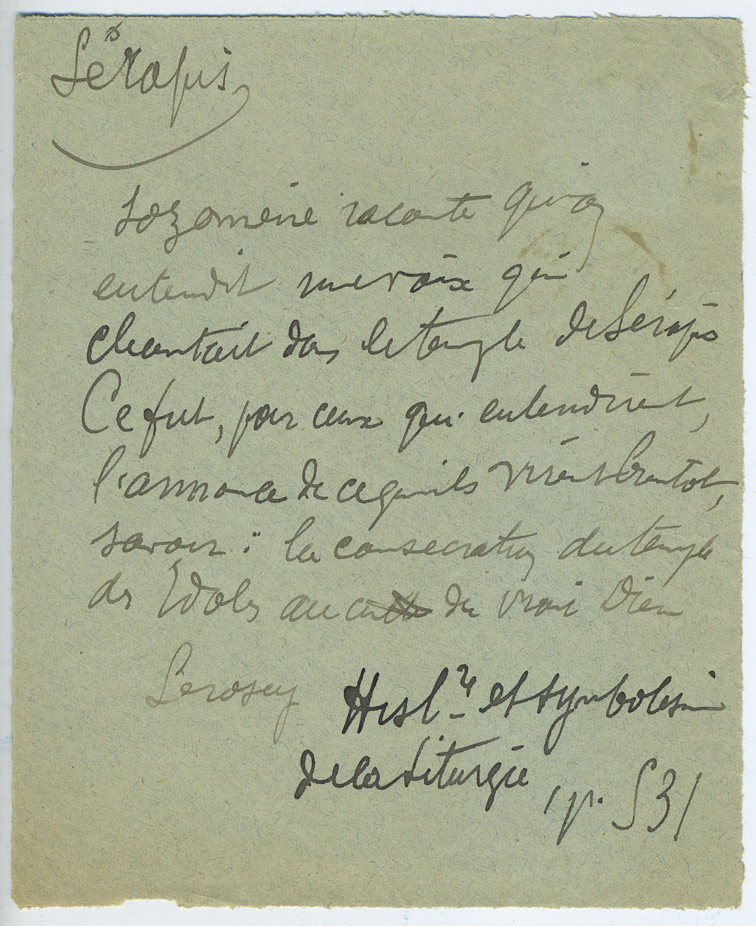 Sérapis
Sozomène raconte qu'on
entendit une voix qui
chantait dans le temple de Sérapis
Ce fut, pour ceux qui entendirent,
l'annonce de ce qu'ils virent bientôt,
savoir : la consécration du temple
des Idoles au culte du vrai Dieu
Lerosey Hist.re et symbolisme
de la Liturgie, p. 531